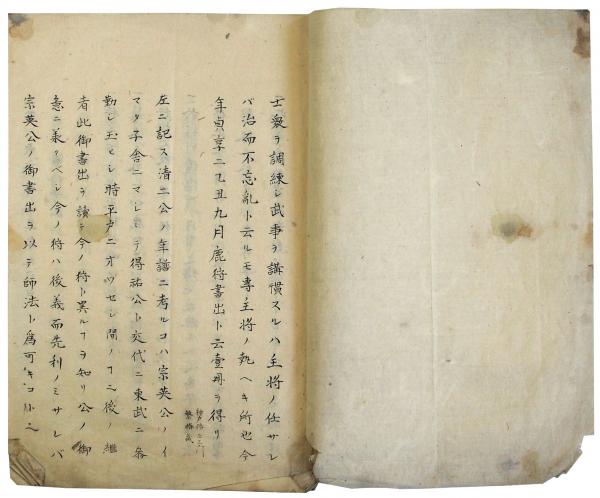 士衆ヲ調練シ武事ヲ講慣スルハ主將ノ任サレ
バ治而不忘亂ト云ルモ專主將ノ執ヘキ所也今
年貞享二乙丑九月鹿狩書出ト云壹册ヲ得リ
左ニ記ス清二公ノ年譜ニ考ルコハ宗英公ノイ
マタ子舎ニマシマシテ得祐公ト交代ニ東武ニ参
勤シ玉ヒシ時平戸ニオワセシ間ノヿニ後ノ繼
者此御書出ヲ讀テ今ノ狩ト異ルヿヲ知リ公ノ御
意ニ義クベシ今ノ狩ハ後義而先利ノミサレバ
宗英公ノ御書出ヲ以テ師法ト為可キコ